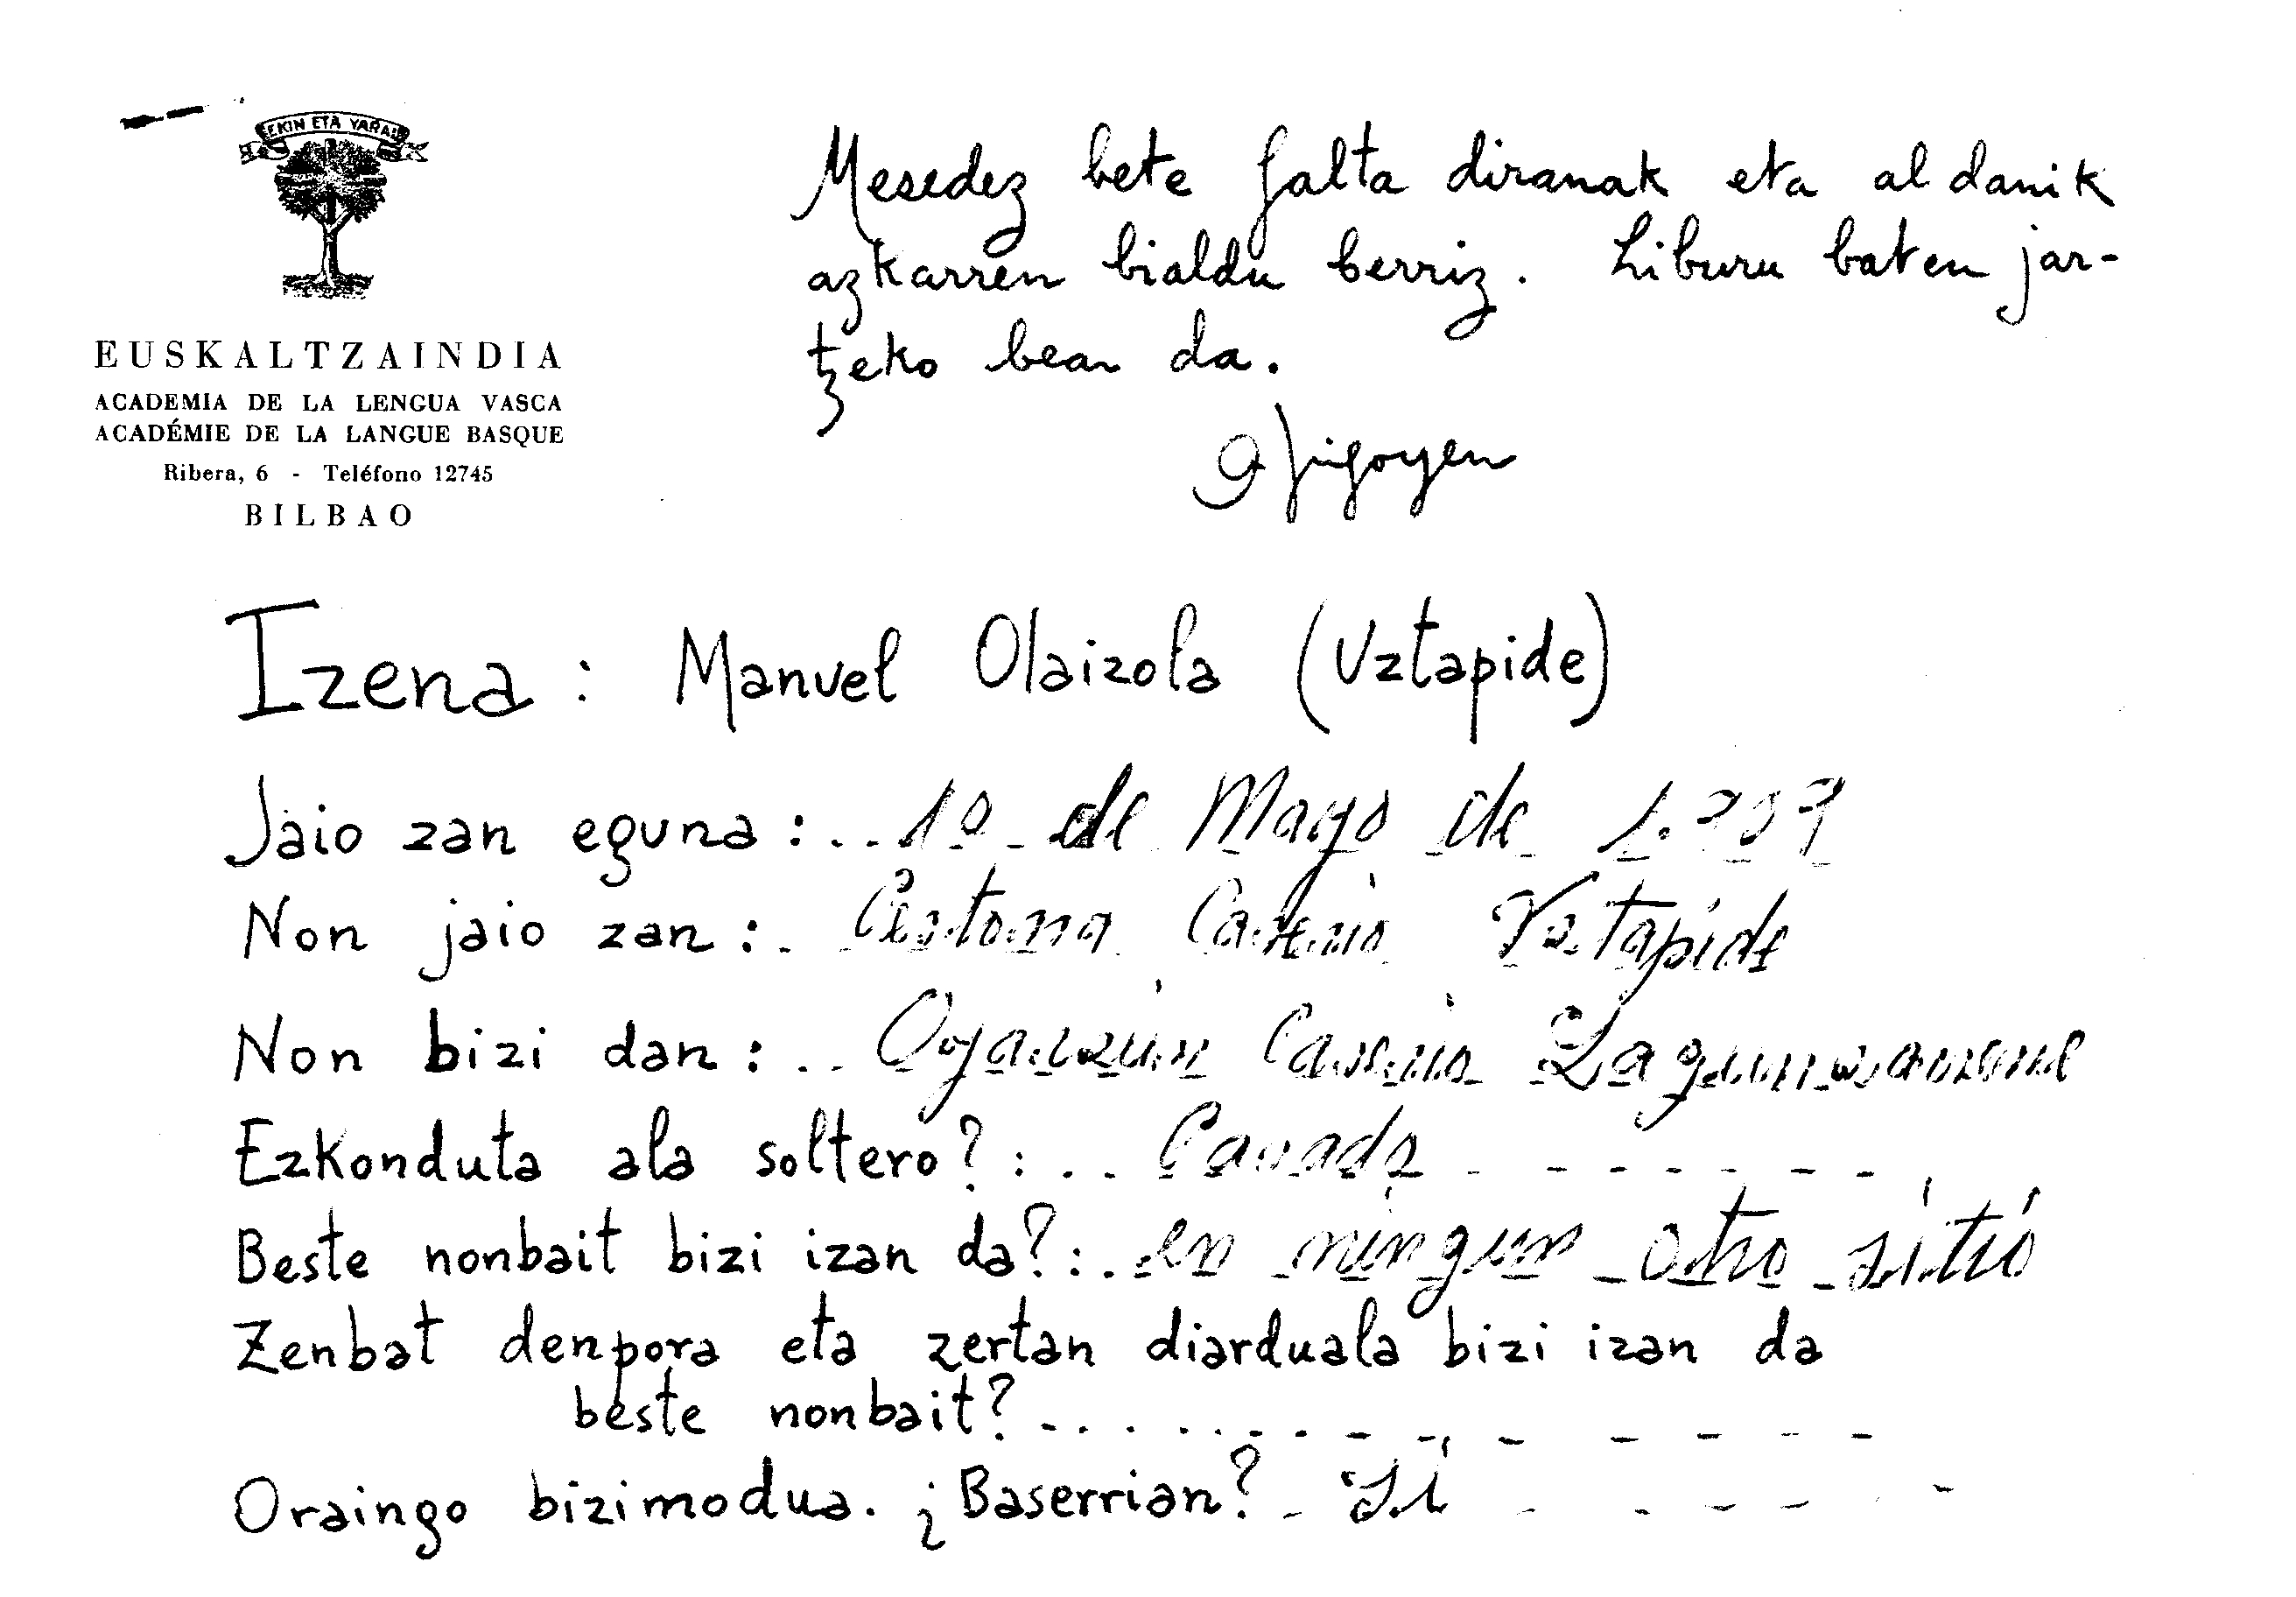 EKIN ETA YARAI
EUSKALTZAINDIA
ACADEMIA DE LA LENGUA VASCA
ACADÉMIE DE LA LANGUE BASQUE
Ribera, 6 - Teléfono 12745
BILBAO
Mesedez bete falta diranak eta al danik
azkarren bialdu berriz. Liburu baten jar-
tzeko bear da.
Izena: Manuel Olaizola (Uztapide)
Jaio zan eguna: 10 de Mayo de 1.909
Non jaio zan: Cestona Caserio Uztapide
Non bizi dan: Oyarzun Caserio
Ezkonduta ala soltero?: Casado
Beste nonbait bizi izan da?: en ningun otro sitio
Zenbat denpora eta zertan diarduala bizi izan da
beste nonbait?
Oraingo bizimodua. ¿Baserrian? Si